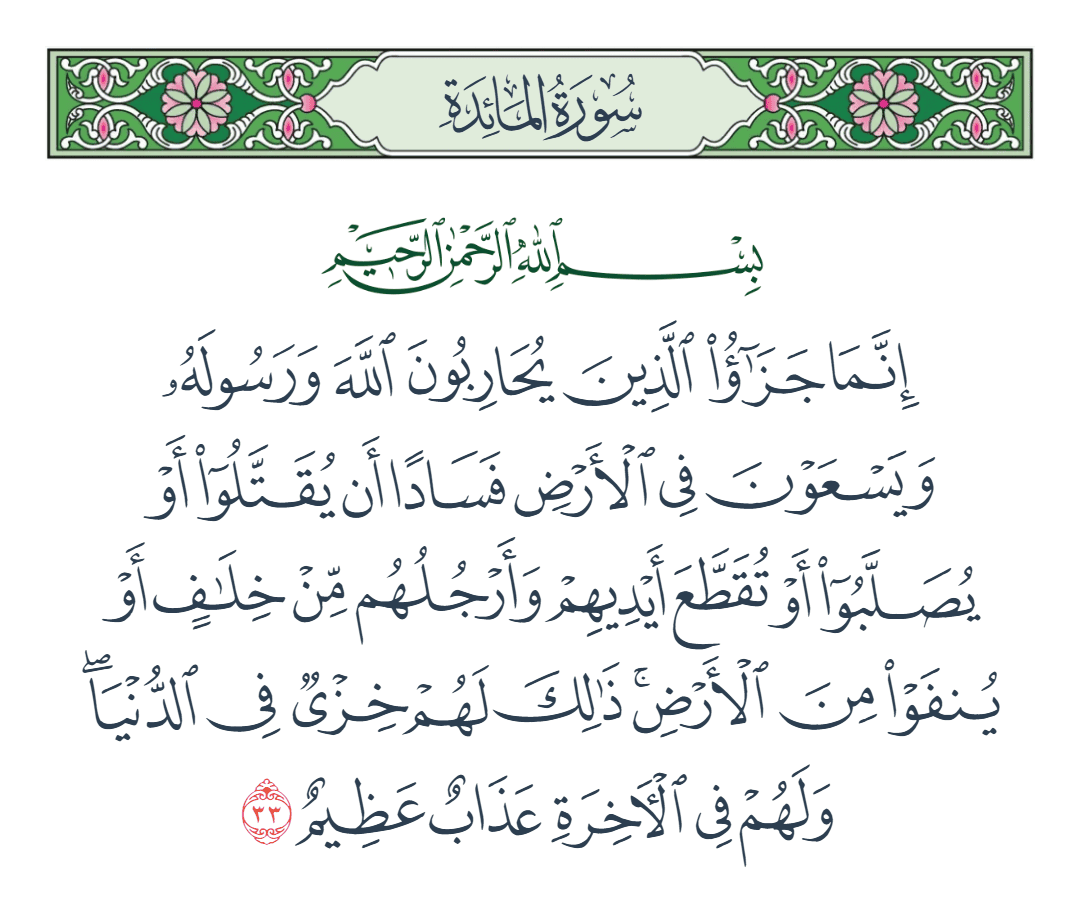 سُورَةُ المَائِدَةِ
بِسْمِ ٱللَّهِ ٱلرَّحْمَٰنِ ٱلرَّحِيمِ
إِنَّمَا جَزَٰٓؤُا۟ ٱلَّذِينَ يُحَارِبُونَ ٱللَّهَ وَرَسُولَهُۥ
وَيَسْعَوْنَ فِى ٱلْأَرْضِ فَسَادًا أَن يُقَتَّلُوٓا۟ أَوْ
يُصَلَّبُوٓا۟ أَوْ تُقَطَّعَ أَيْدِيهِمْ وَأَرْجُلُهُم مِّنْ خِلَـٰفٍ أَوْ
يُنفَوْا۟ مِنَ ٱلْأَرْضِ ۚ ذَٰلِكَ لَهُمْ خِزْىٌ فِى ٱلدُّنْيَا ۖ
وَلَهُمْ فِى ٱلْـَٔاخِرَةِ عَذَابٌ عَظِيمٌ ٣٣